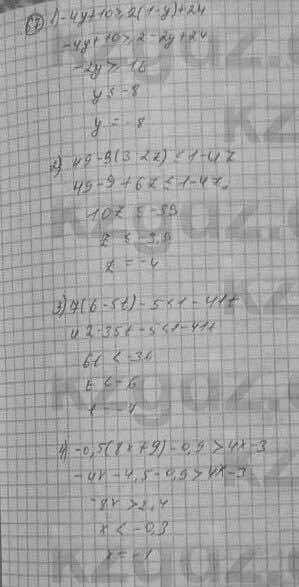 1) -4y+10≥2(1-y)+24
-4y+10≥2-2y+24
-2y≥16
y≤-8
y=-8
2) 49-3(3-2z)≤1-4z
49-9+6z≤1-4z
10z≤-39
z≤-3,9
z=-4
3) 7(6-5t)-5<1-41t
42-35t-5<1-41t
6t<-36
t<-6
4) -0,5(8x+9)-0,9>4x-3
-4x-4,5-0,9>4x-3
-8x>2,4
x<-0,3
x=-1
kzgaz.kz